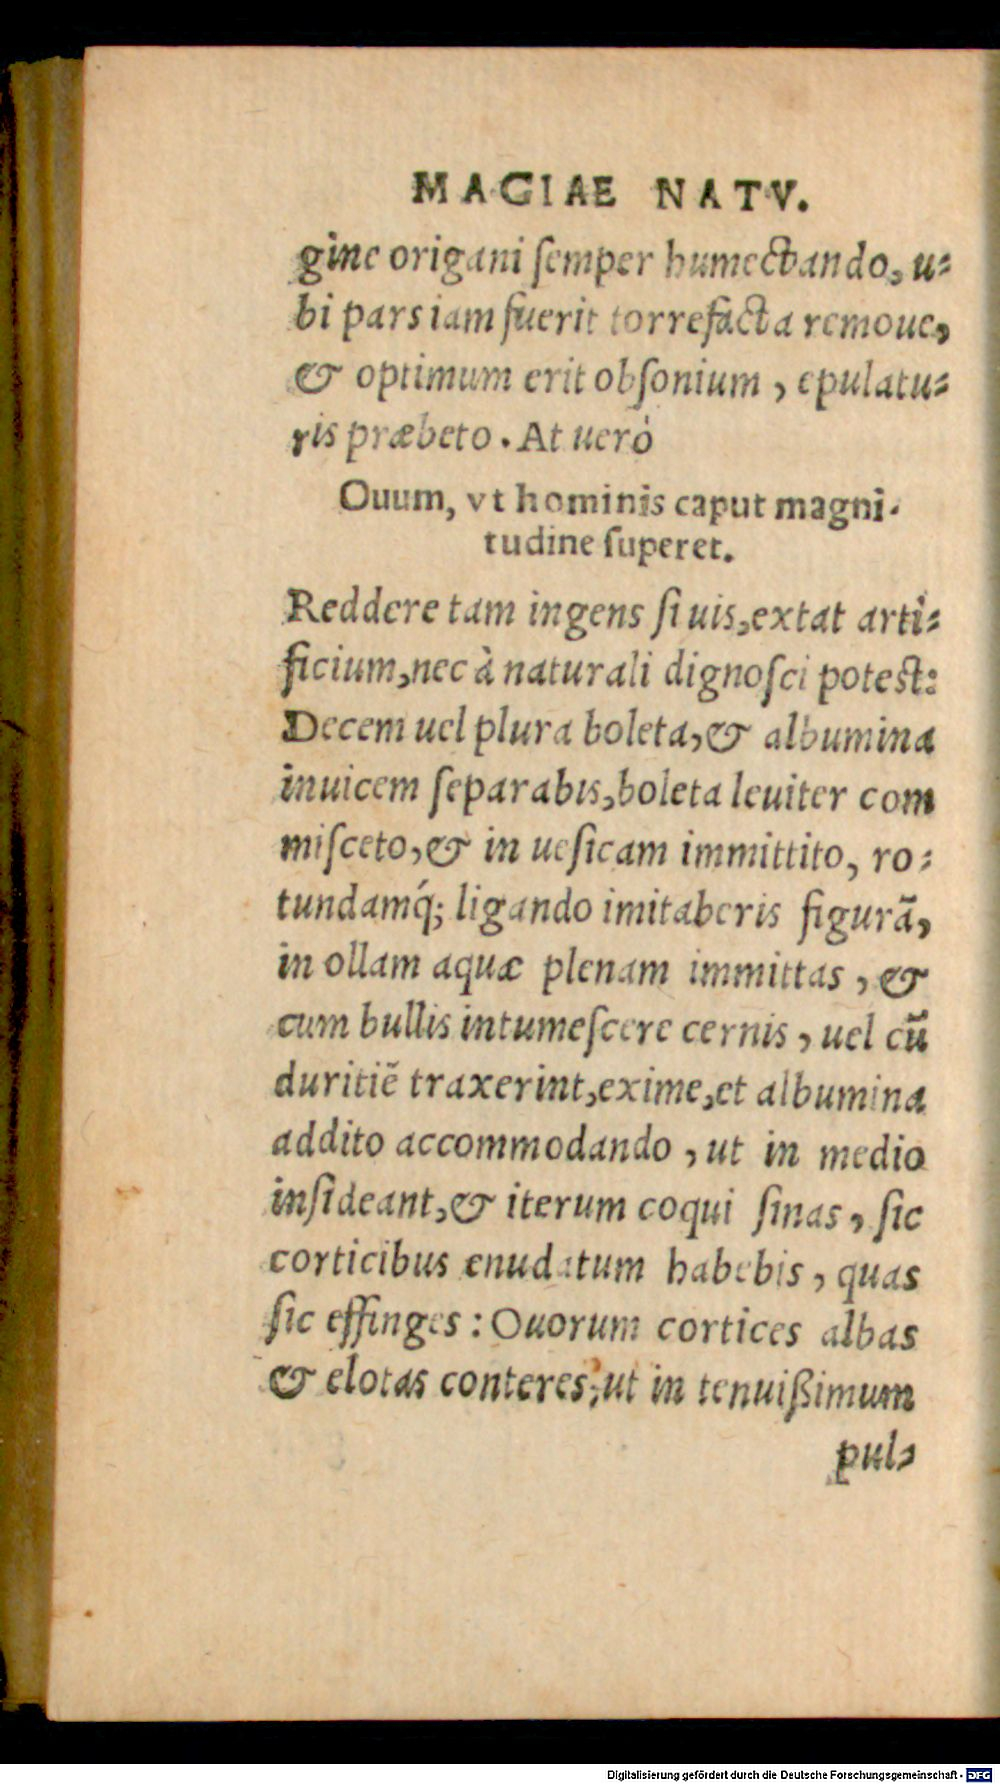 MAGIAE NATV.
gine origani ſemper humectando, u-
bi pars iam fuerit torrefacta remoue,
& optimum erit obſonium, epulatu-
ris præbeto. At uerò
Ouum, vt hominis caput magni-
tudine ſuperet.
Reddere tam ingens ſi uis, extat arti-
ficium, nec à naturali dignoſci poteſt:
Decem uel plura boleta, & albumina
inuicem ſeparabis, boleta leuiter com
miſceto, & in ueſicam immittito, ro-
tundamq́; ligando imitaberis figurã,
in ollam aquæ plenam immittas, &
cum bullis intumeſcere cernis, uel cũ
duritiẽ traxerint, exime, et albumina
addito accommodando, ut in medio
inſideant, & iterum coqui ſinas, ſic
corticibus enudatum habebis, quas
ſic effinges: Ouorum cortices albas
& elotas conteres, ut in tenuißimum
pul-
Digitalisierung gefördert durch die Deutsche Forschungsgemeinschaft - DFG